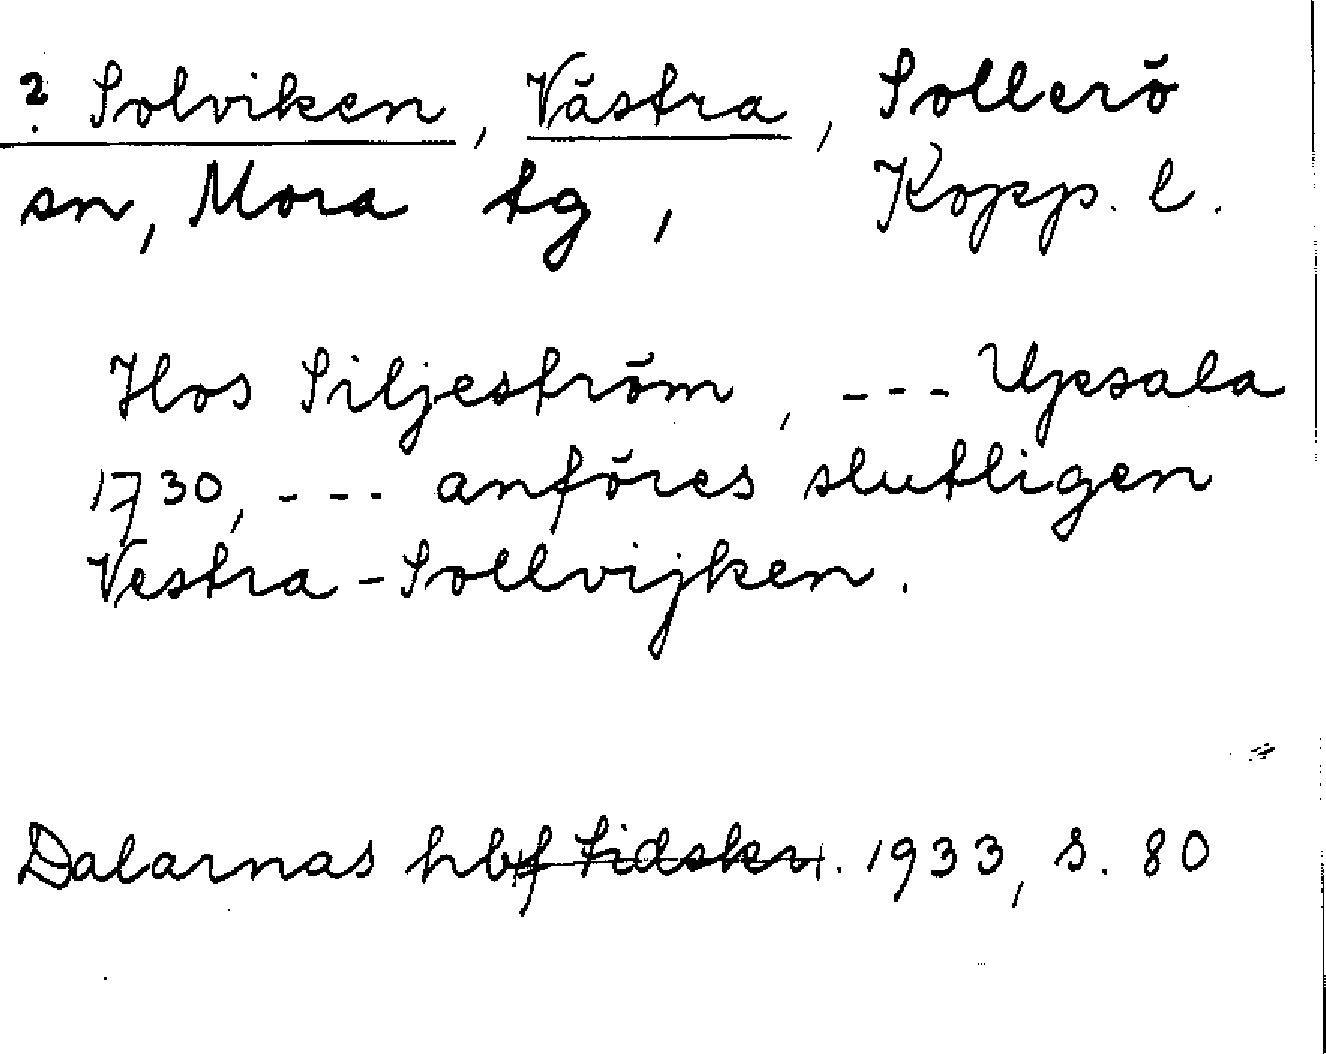 ? Solviken, Västra, Sollerö
sn, Mora tg, Kopp. l.
Hos Siljeström, --- Upsala
1730, --- anföres slutligen
Vestra-Sollvijken.
Dalarnas hbf tidskr. 1933, s. 80